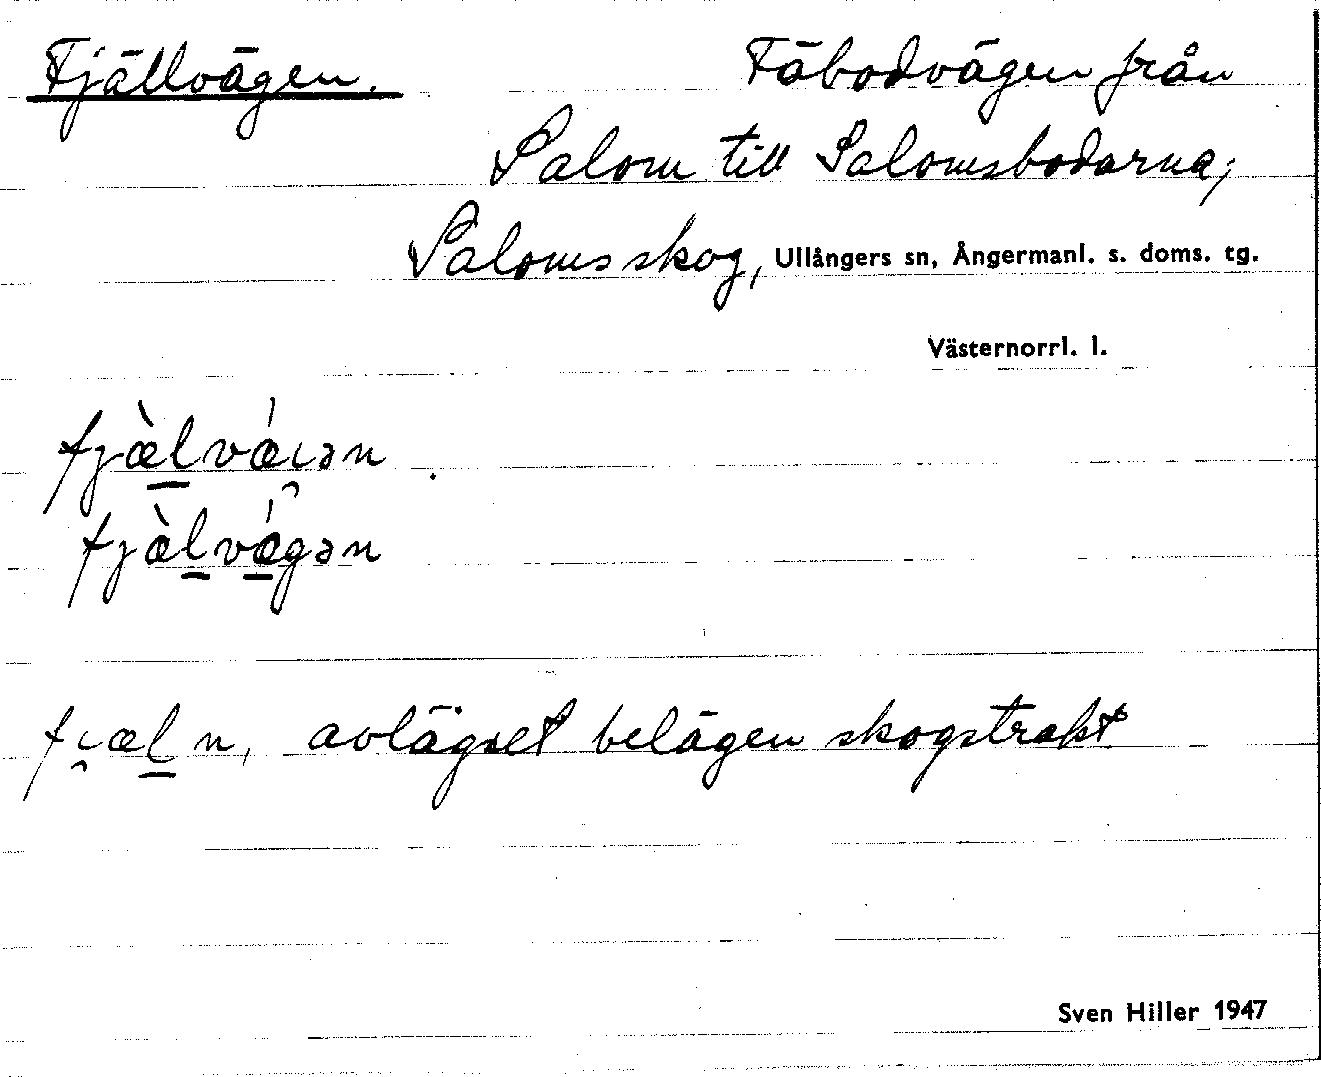 Fjällvägen. Fäbodvägen från
Salom till Salomsbodarna,
Saloms skog, Ullångers sn, Ångermanl. s. doms. tg.
Västernorrl. l.
fjæ̀l̠vǽı̯ən
fjæ̀l̠vǽ̠gən
fı̯æl̠ n, avlägset belägen skogstrakt
Sven Hiller 1947